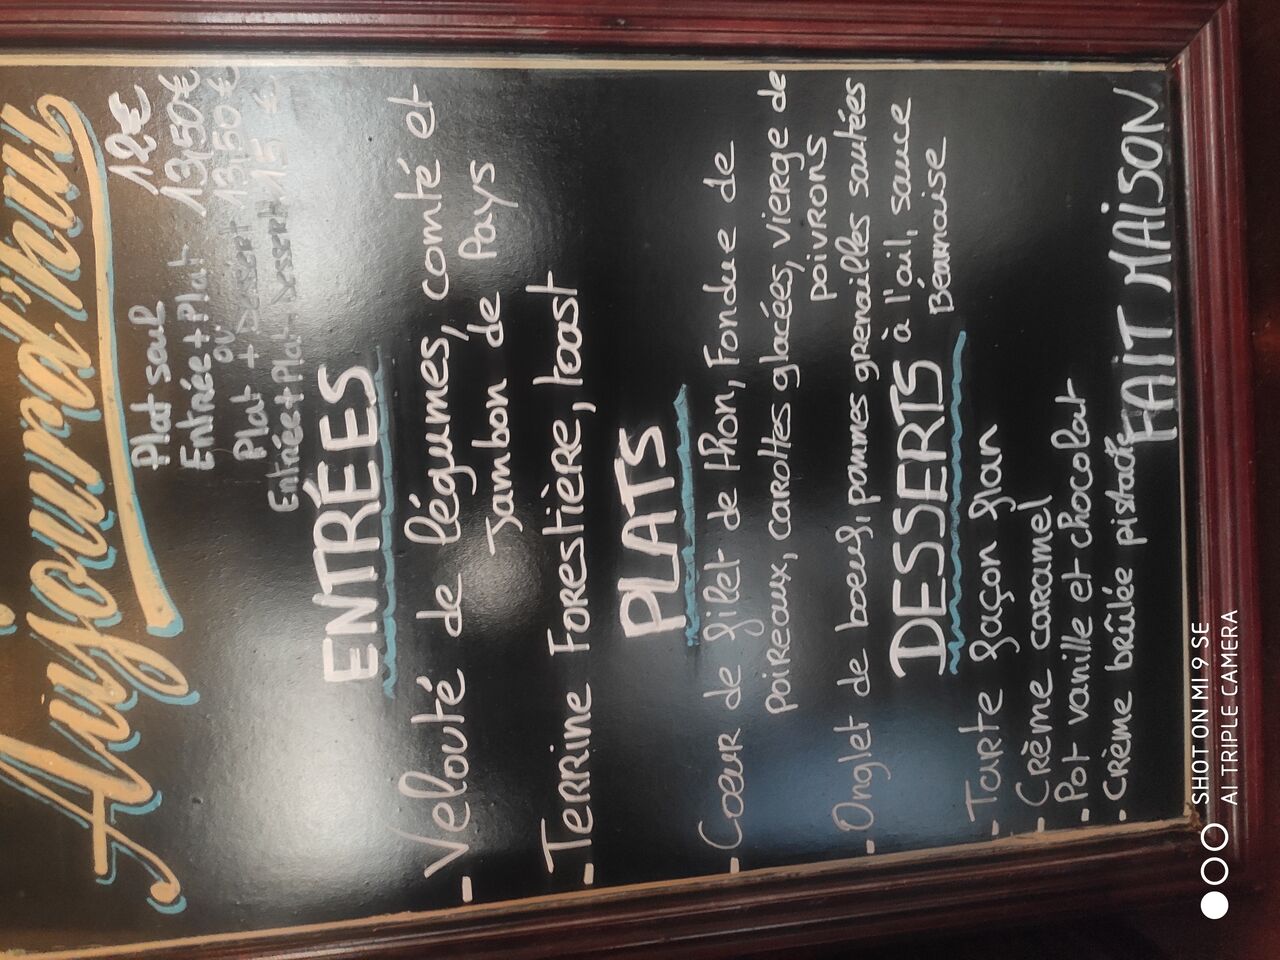 Aujourd'hui
Plat seul 12€
Entrée + Plat 13,50€
ou
Plat + Dessert 13,50€
Entrée + Plat + Dessert 15 €
ENTRÉES
- Velouté de légumes, comté et
Jambon de Pays
- Terrine Forestière, toast
PLATS
- Coeur de filet de thon, Fondue de
poireaux, carottes glacées, vierge de
poivrons
- Onglet de boeuf, pommes grenailles sautées
à l'ail, sauce
Béarnaise
DESSERTS
- Tarte façon flan
- Crème caramel
- Pot vanille et chocolat
- Crème brûlée pistache
FAIT MAISON
SHOT ON MI 9 SE
AI TRIPLE CAMERA